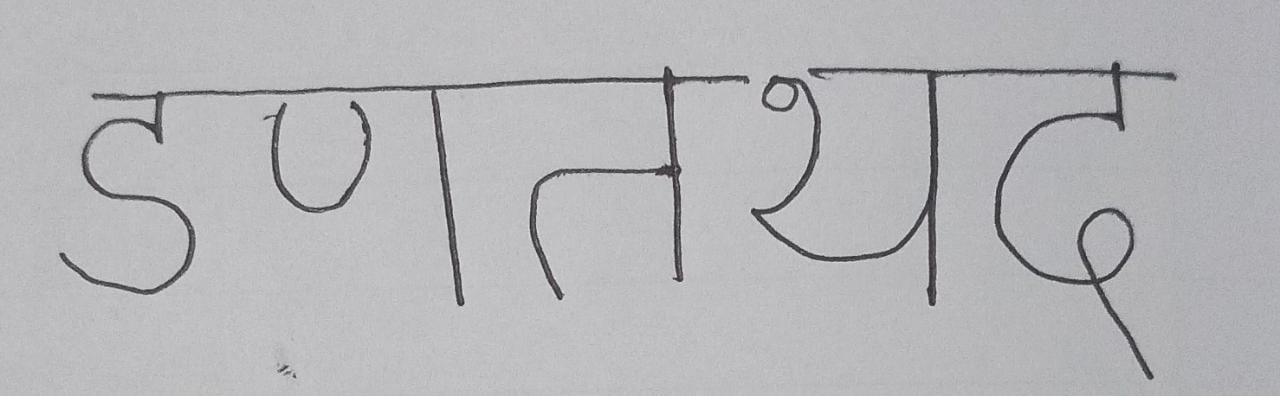 डणतथद